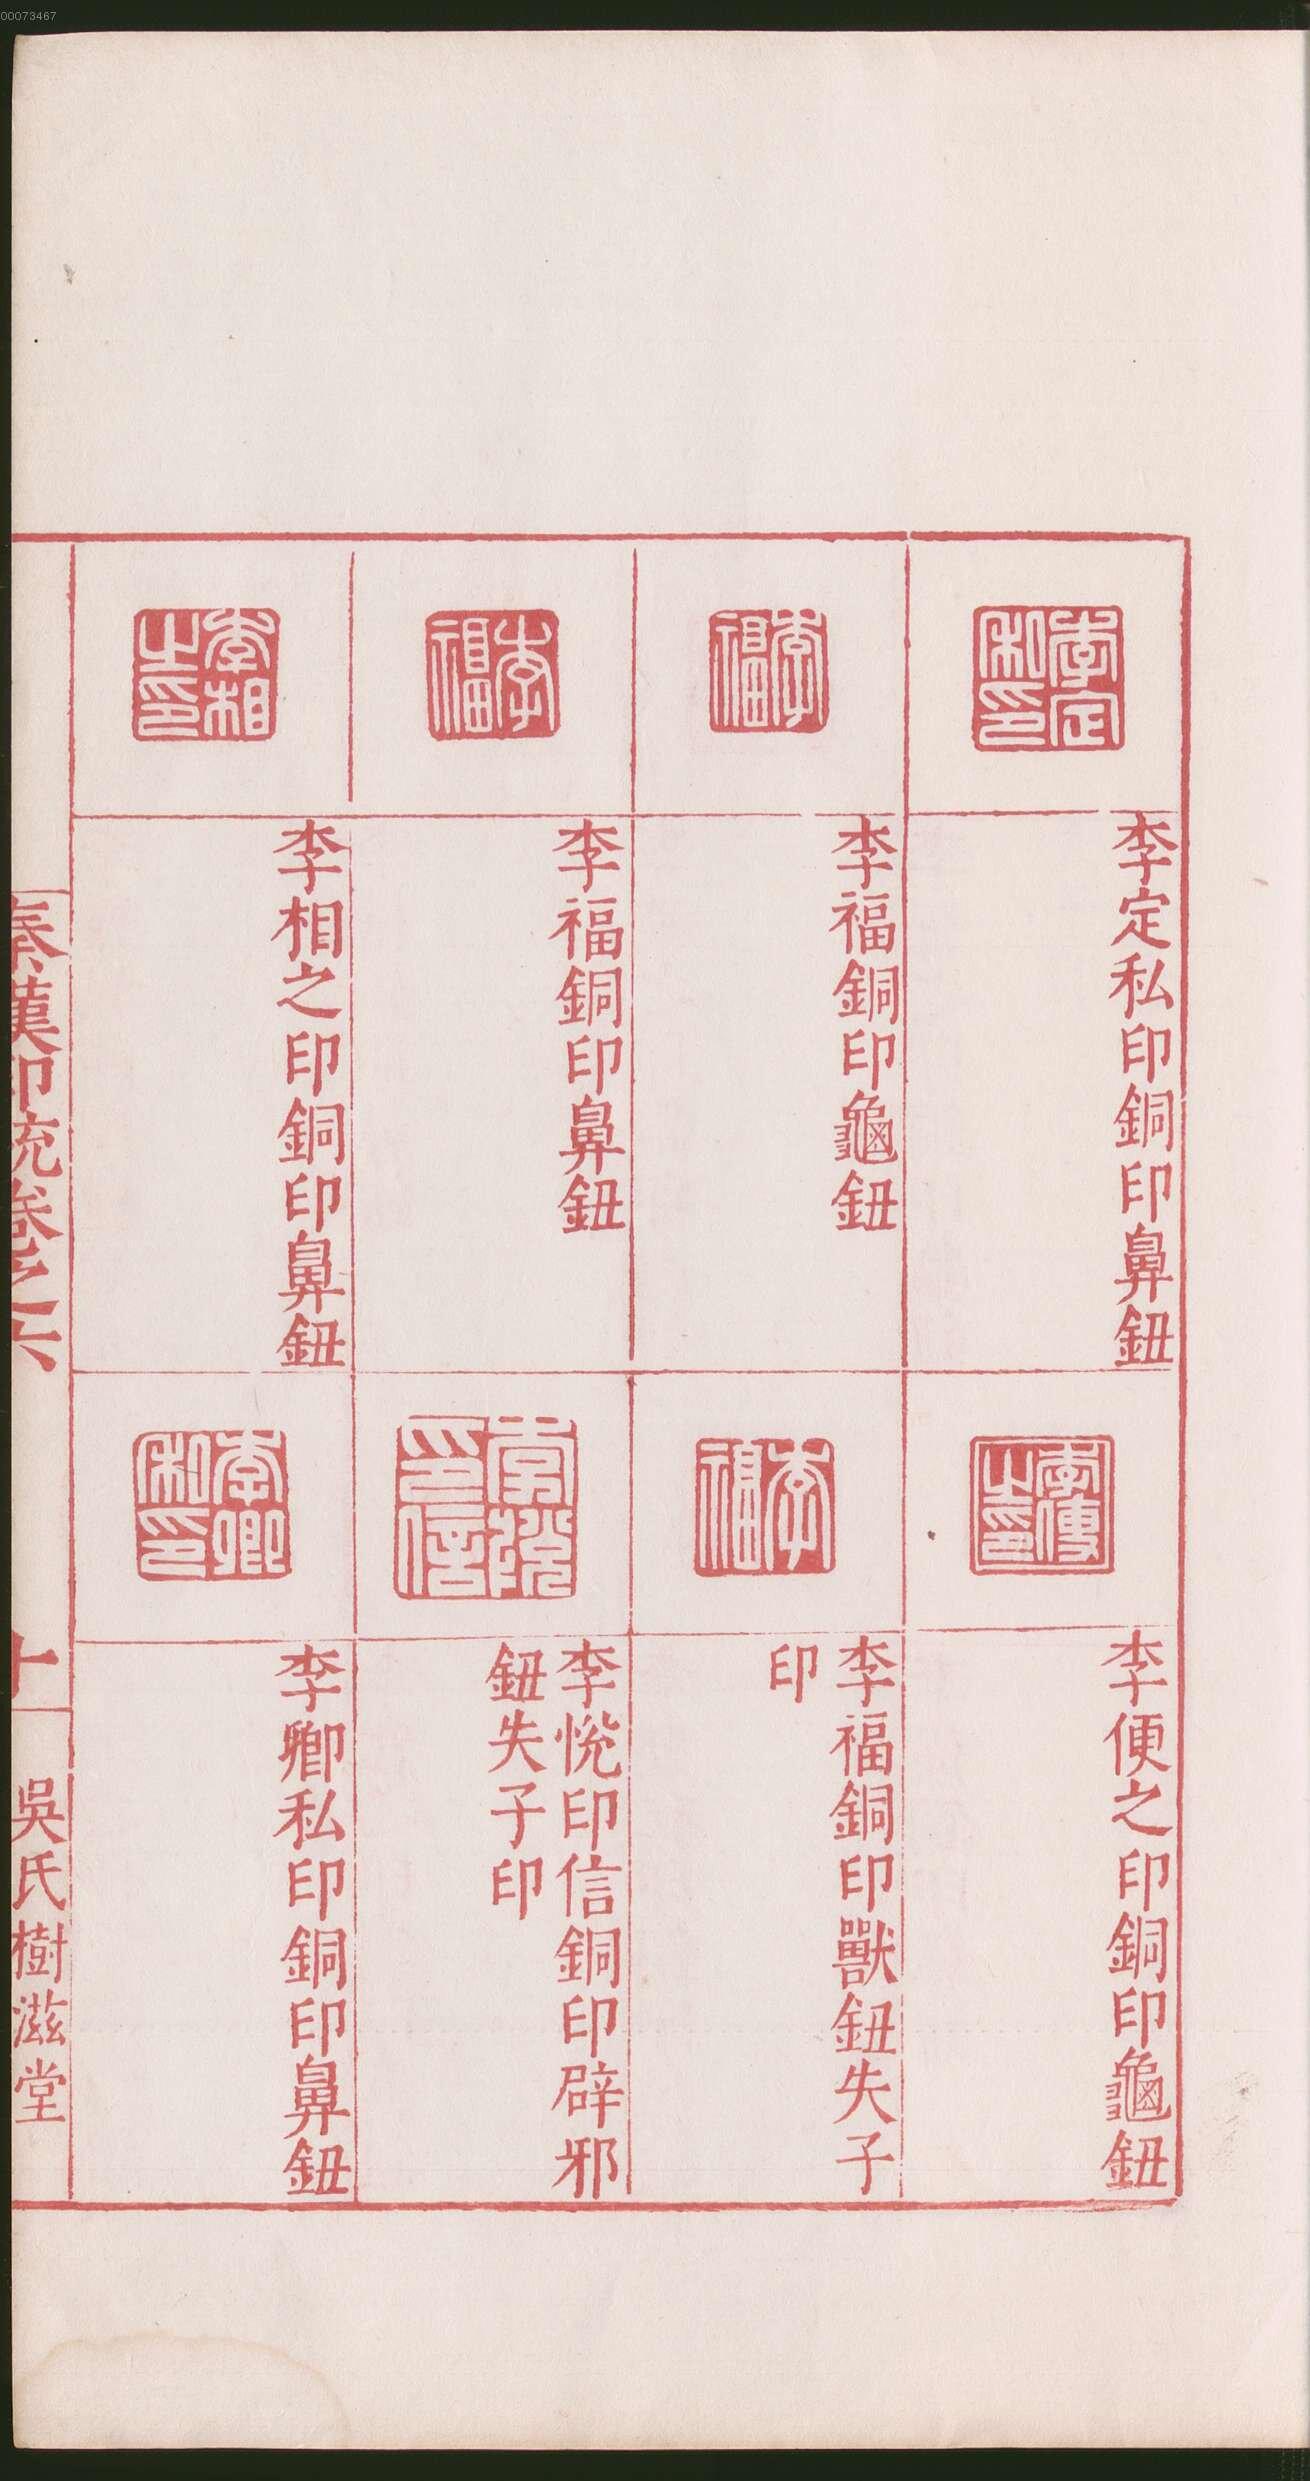 00073467
李定私印
李定私印銅印鼻鈕
李便之印
李便之印銅印龜鈕
李福
李福銅印龜鈕
李福
李福銅印獸鈕失子
印
李福
李福銅印鼻鈕
李悅印信
李悅印信銅印辟邪
鈕失子印
李相之印
李相之印銅印鼻鈕
李卿私印
李卿私印銅印鼻鈕
秦漢印統卷之六
十
吳氏樹滋堂